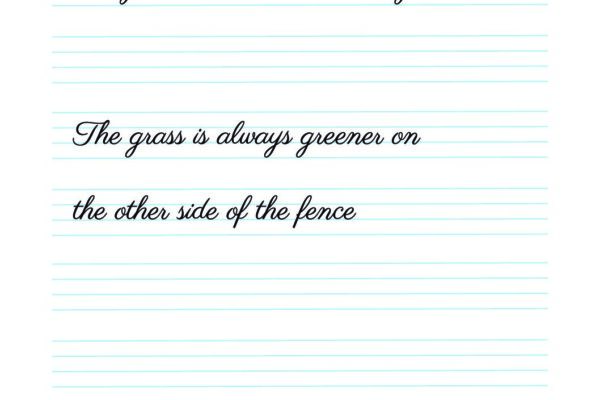 The grass is always greener on
the other side of the fence